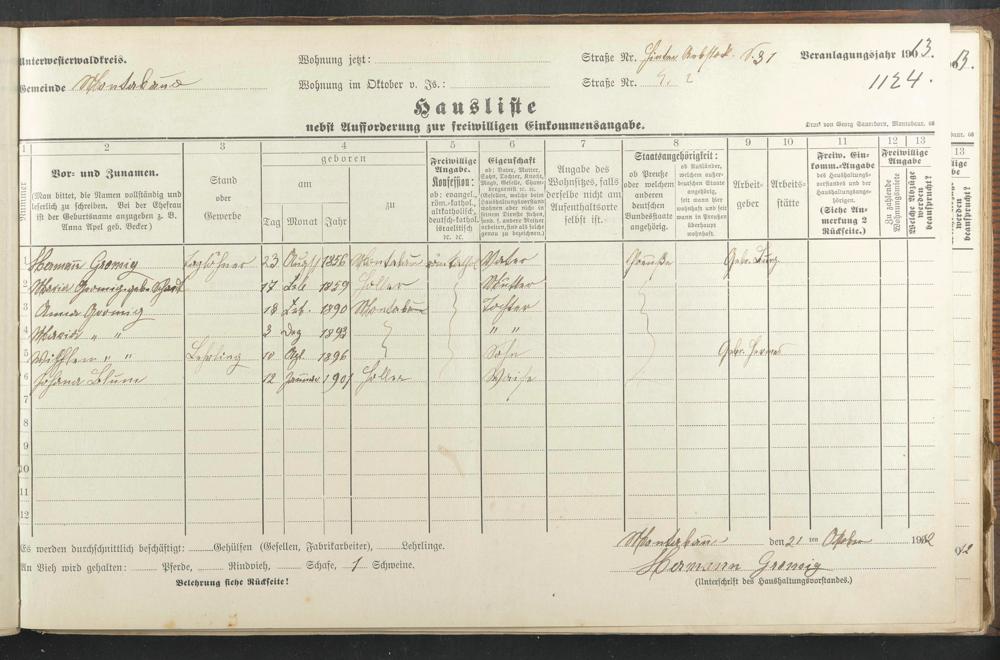 Unterwesterwaldkreis.
Wohnung jetzt:
Straße Nr. Hinter Rebstock N. 31
Veranlagungsjahr 1913.
Gemeinde Montabaur
Wohnung im Oktober v. Js.:
Straße Nr. 2
1124.
Hausliste
nebst Aufforderung zur freiwilligen Einkommensangabe.
Druck von Georg Sauerborn, Montabaur.
1 2 3 4 5 6 7 8 9 10 11 12 13
Nummer
Vor- und Zunamen.
(Man bittet, die Namen vollständig und leserlich zu schreiben. Bei der Ehefrau ist der Geburtsname anzugeben z. B. Anna Apel geb. Becker.)
Stand oder Gewerbe
geboren
am
Tag Monat Jahr
zu
Freiwillige Angabe.
Konfession:
ob: evangel., röm.-kathol., altkatholisch, deutsch-kathol. israelitisch ec. ec.
Eigenschaft
ob: Vater, Mutter, Sohn, Tochter, Knecht, Magd, Geselle,
Angabe des Wohnsitzes, falls derselbe nicht am Aufenthaltsorte selbst ist.
Staatsangehörigkeit:
ob Preuße oder welchem anderen deutschen Bundesstaate angehörig.
ob Ausländer, welchem außerdeutschen Staate angehörig, seit wann hier wohnhaft und seit wann in Preußen überhaupt wohnhaft.
Arbeitgeber
Arbeitsstätte
Freiw. Einkomm.-Angabe
des Haushaltungsvorstandes und der Haushaltungsangehörigen.
(Siehe Anmerkung 2 Rückseite.)
Freiwillige Angabe
Zu zahlende Wohnungsmiete
Welche Abzüge werden beansprucht?
1 Hermann Gromig Taglöhner 23 August 1856 Montabaur röm kathol Vater Preuße Gebr. Jung
2 Maria Gromig gebe 17 Feb 1859 Holler Mutter
3 Anna Gromig 18 Feb. 1890 Montabaur Tochter
4 Maria " " 3 Dez 1893 " "
5 Wilhelm " " Lehrling 10 1896 Sohn Gebr. Hermes
6 Johana Blum 12 Januar 1901 Holler Waise
7
8
9
10
11
12
Es werden durchschnittlich beschäftigt: Gehülfen (Gesellen, Fabrikarbeiter), Lehrlinge.
Montabaur den 21 ten Oktober 1912
An Vieh wird gehalten: Pferde, Rindvieh, Schafe, 1 Schweine.
Hermann Gromig
Belehrung siehe Rückseite!
(Unterschrift des Haushaltungsvorstandes.)